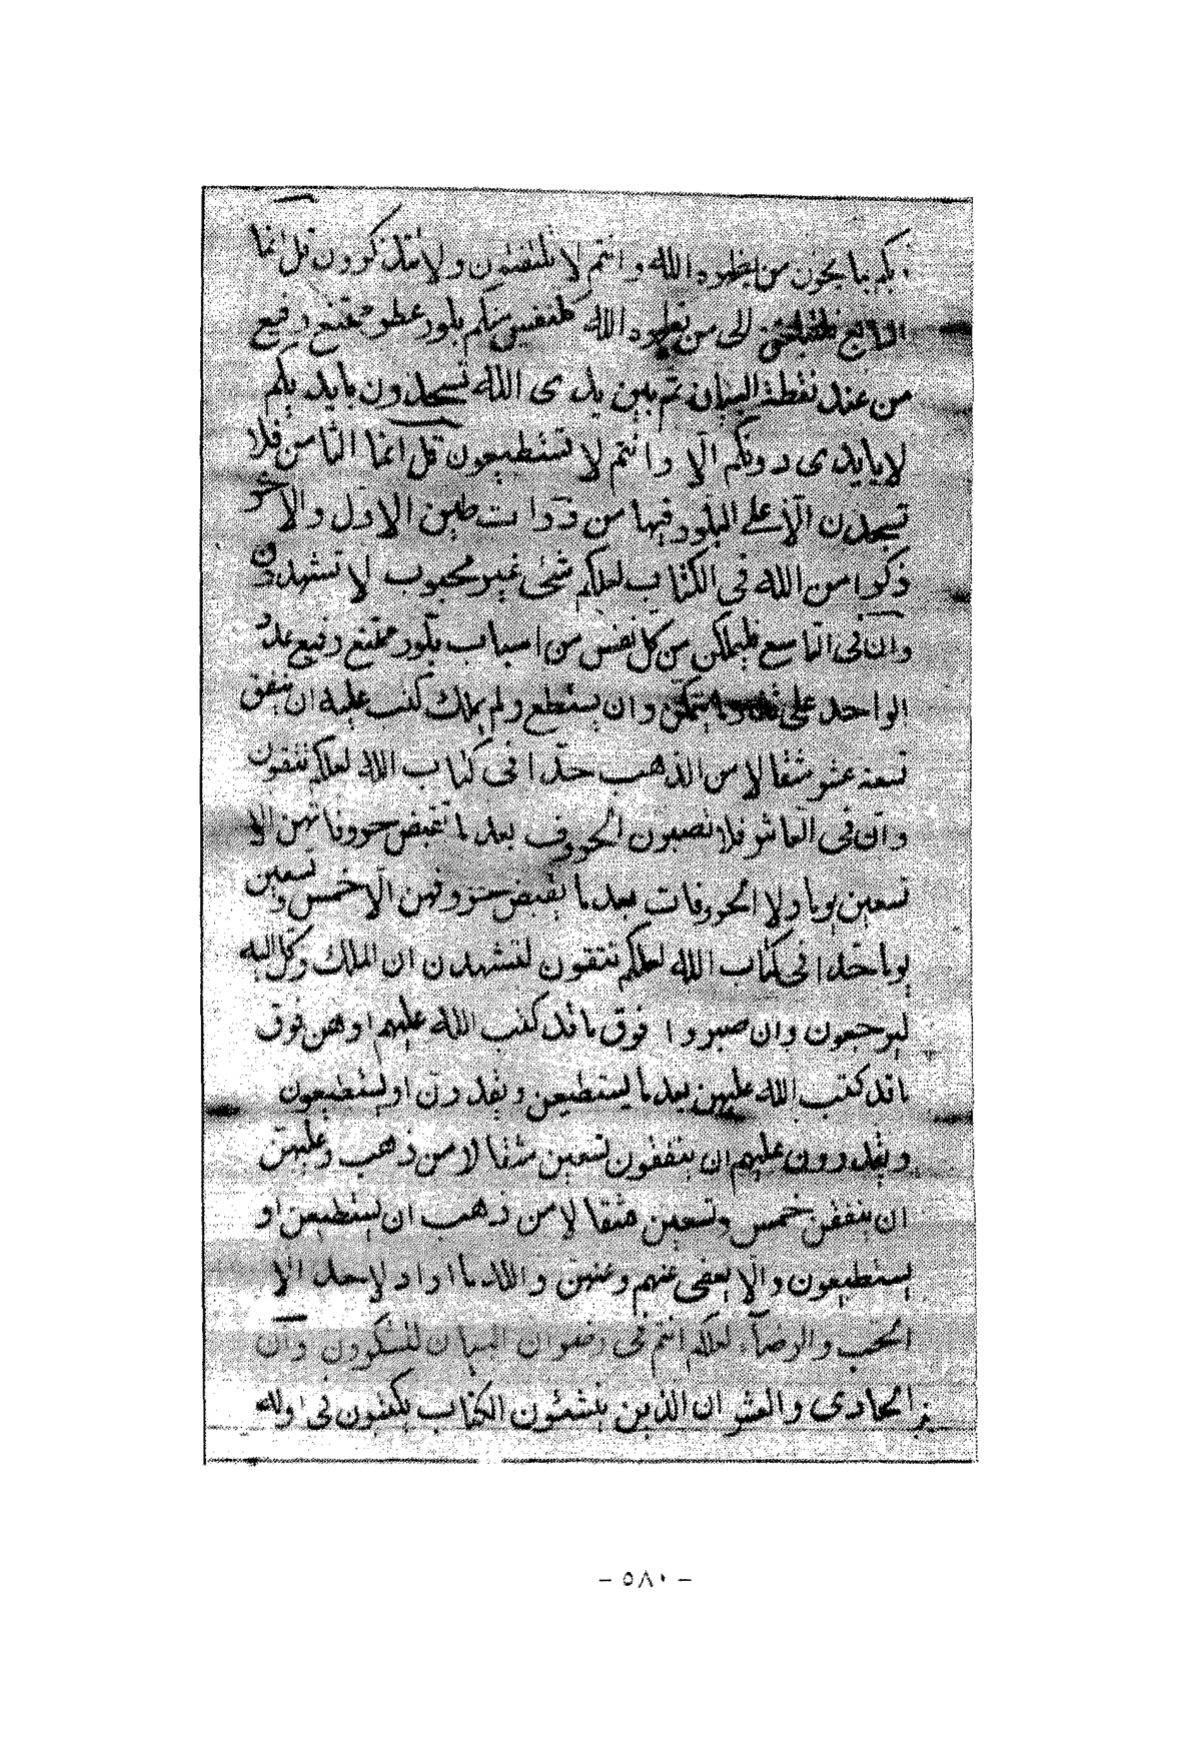 بكم ما يحزن من يظهره الله وانتم لا تلتفتون ولا تتذكرون قل انما
الرابع فلتبلغن الى من يظهره الله كل نفس منكم بلور عطر ممتنع رفيع
من عند نقطة البيان ثم بين يدى الله تسجدون بايديكم
لا بايدى دونكم الا وانتم لا تستطيعون قل انما الثامن فلا
تسجدن الا على البلور فيها من ذرات طين الاول والاخر
ذكرا من الله فى الكتاب لعلكم شئ غير محبوب لا تشهدون
وان فى التاسع فليملكن من كل نفس من اسباب بلور ممتنع رفيع عدد
الواحد على وان يستطع ولم يملك كتب عليه ان ينفق
تسعة عشر مثقالا من الذهب حدا فى كتاب الله لعلكم تتقون
وان فى العاشر فلا تصبرون الحروف بعد ما تقبض حروفاتهن الا
تسعين يوما ولا الحروفات بعد ما يقبض حروفهن الا خمس وتسعين
يوما حدا فى كتاب الله لعلكم تتقون لتشهدن ان الملك وكل اليه
ليرجعون وان صبروا فوق ما قد كتب الله عليهم او هن فوق
ما قد كتب الله عليهن بعد ما يستطيعن ويقدرن او يستطيعون
ويقدرون عليهم ان ينفقون تسعين مثقالا من ذهب وعليهن
ان ينفقن خمس وتسعين مثقالا من ذهب ان يستطيعن او
يستطيعون والا يعفى عنهم وعنهن والله ما اراد لاحد الا
الحب والرضآء لعلكم انتم فى رضوان البيان لتشكرون وان
الحادى والعشر ان الذين ينشئون الكتاب يكتبون فى اوله
- ٥٨٠ -